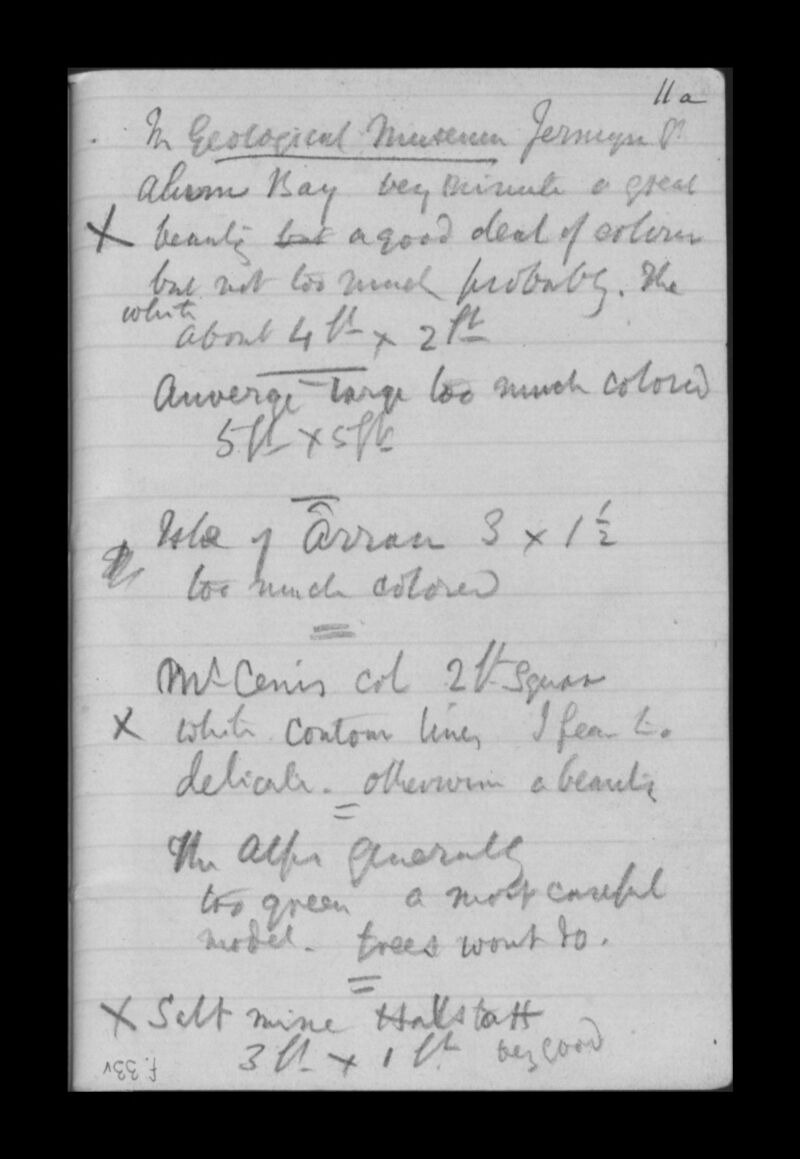 11a
In Geological Museum Jermyn St
Alum Bay very minute a great
X beauty but a good deal of colour
but not too much probably. The
white
about 4 ft x 2 ft
Auverge large too much colored
5 ft x 5 ft
Isle of Arran 3 x 1 1/2
too much colored
Mt Cenis col 2 ft square
X white contour lines I fear too
delicate. otherwise a beauty
The Alps generally
too green a most careful
model. trees wont do.
X Salt mine Hallstatt
3 ft x 1 ft very good
f. 33v